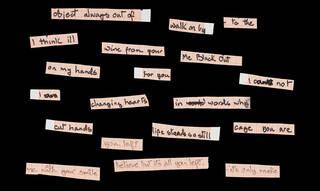 object always out of
walk on by
to the
I think ill
wine from your
Me Black Out
on my hands
for you
I not
I
changing hearts
in words why
cut hands
life stands so still
cage you are
you left
me with your smile
believe but it's all you left